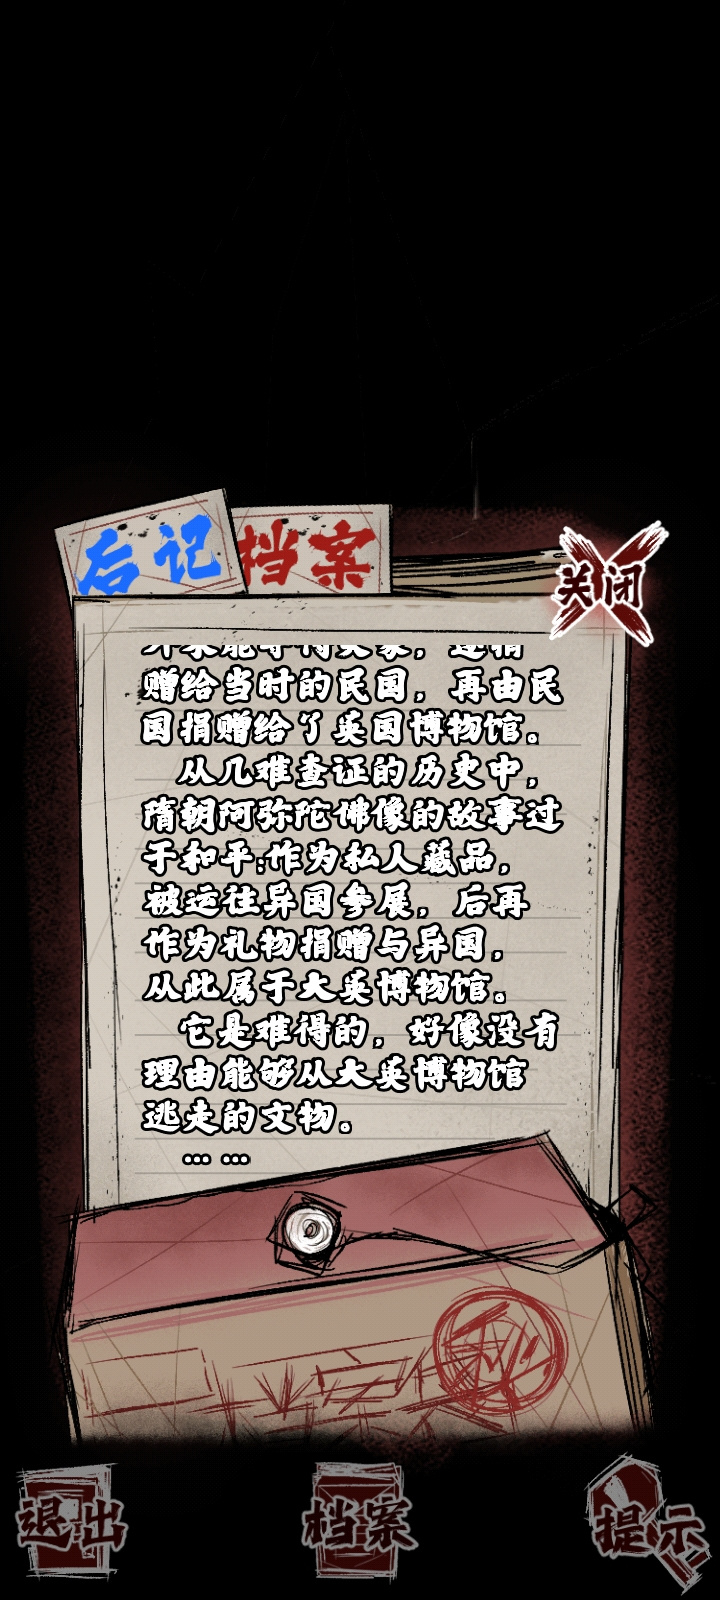 后记
档案
关闭
赠给当时的民国，再由民
国捐赠给了英国博物馆。
从几难查证的历史中，
隋朝阿弥陀佛像的故事过
于和平:作为私人藏品，
被运往异国参展，后再
作为礼物捐赠与异国，
从此属于大英博物馆。
它是难得的，好像没有
理由能够从大英博物馆
逃走的文物。
... ...
退出
档案
提示